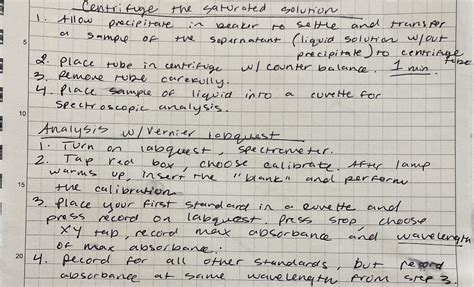 Centrifuge the saturated solution
1. Allow precipitate in beaker to settle and transfer
a sample of the supernatant (liquid solution w/out
5
precipitate) to centrifuge
tube
2. Place tube in centrifuge w/ counter balance. 1 min.
3. Remove tube carefully.
4. Place sample of liquid into a cuvette for
spectroscopic analysis.
10
Analysis w/ Vernier labquest
1. Turn on labquest, spectrometer.
2. Tap red box, choose calibrate. After lamp
warms up, insert the "blank" and perform
15
the calibration
3. Place your first standard in a cuvette and
press record on labquest. Press stop, choose
XY tap, record max absorbance and wavelength
of max absorbance.
20
4. Record for all other standards, but record
absorbance at same wavelength from step 3.